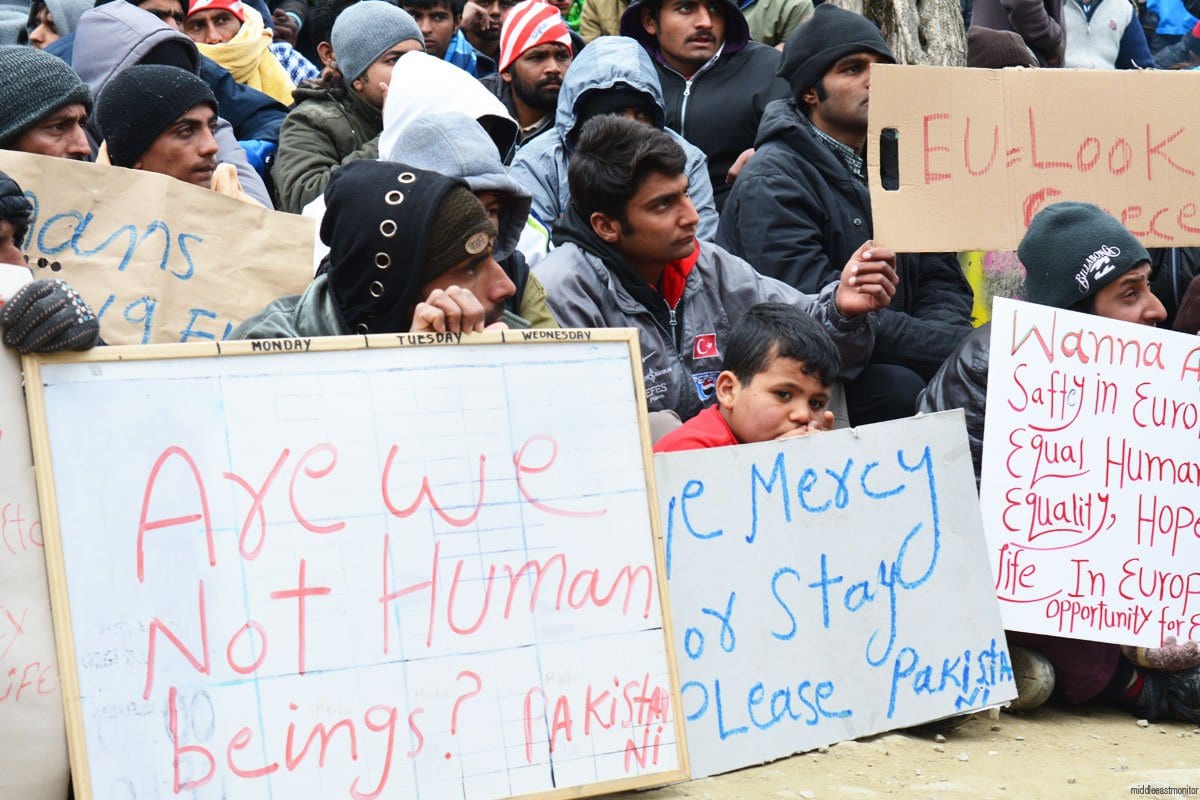 EU=Look
Greece
MONDAY
TUESDAY
WEDNESDAY
Are we
Not Human
beings? PAKistA
Ni
Mercy
or Stay
PLease PakistA
Ni
Wanna
Saftey in Euro
Equal Human
Equality, Hope
life In Europ
opportunity for E
BILLABONG
LiFE
middleeastmonitor